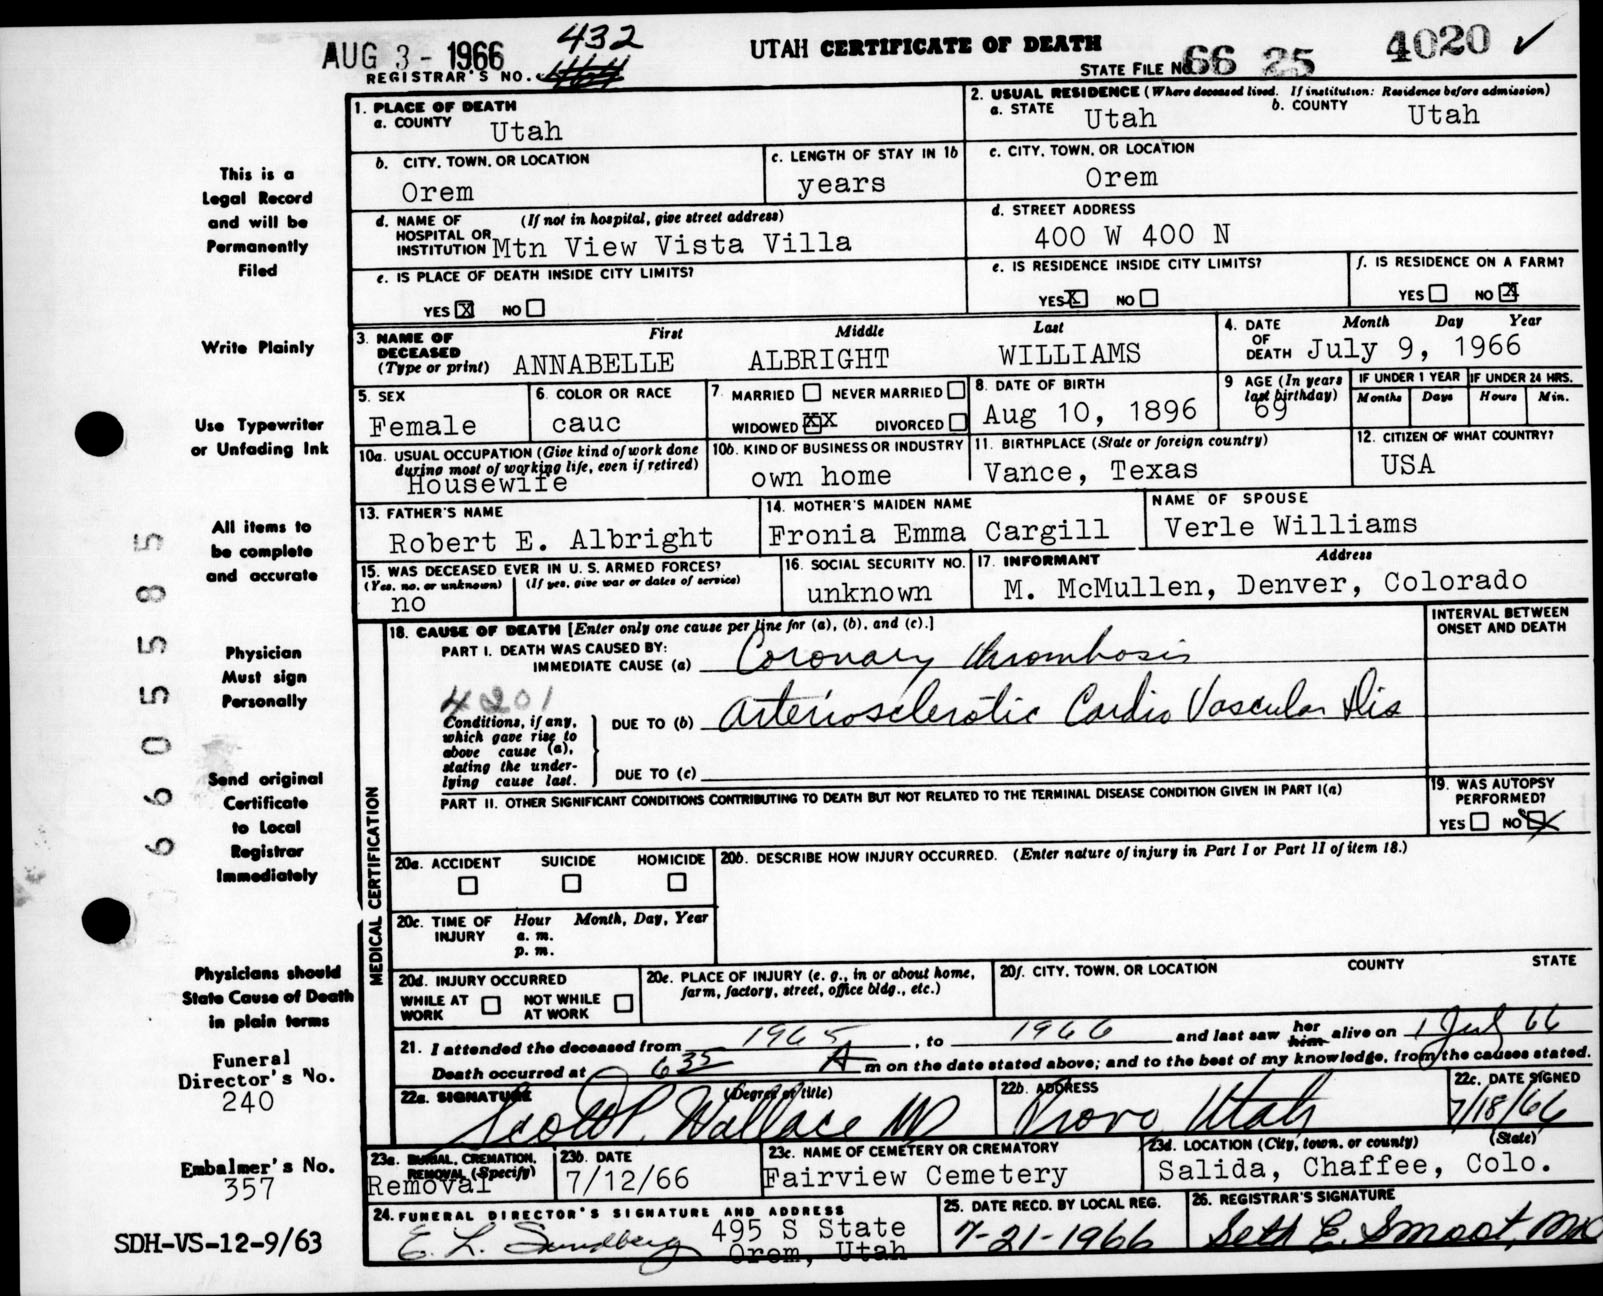 AUG 3 - 1966
432
REGISTRAR'S NO.
UTAH CERTIFICATE OF DEATH
STATE FILE NO. 66 25 4020 ✓
1. PLACE OF DEATH
a. COUNTY Utah
2. USUAL RESIDENCE (Where deceased lived. If institution: Residence before admission)
a. STATE Utah b. COUNTY Utah
b. CITY, TOWN, OR LOCATION
Orem
c. LENGTH OF STAY IN 1b
years
c. CITY, TOWN, OR LOCATION
Orem
d. NAME OF (If not in hospital, give street address)
HOSPITAL OR
INSTITUTION Mtn View Vista Villa
d. STREET ADDRESS
400 W 400 N
e. IS PLACE OF DEATH INSIDE CITY LIMITS?
YES X NO
e. IS RESIDENCE INSIDE CITY LIMITS?
YES X NO
f. IS RESIDENCE ON A FARM?
YES NO X
3. NAME OF First Middle Last
DECEASED
(Type or print) ANNABELLE ALBRIGHT WILLIAMS
4. DATE Month Day Year
OF
DEATH July 9, 1966
5. SEX
Female
6. COLOR OR RACE
cauc
7. MARRIED NEVER MARRIED
WIDOWED XX DIVORCED
8. DATE OF BIRTH
Aug 10, 1896
9 AGE (In years
last birthday)
69
IF UNDER 1 YEAR
Months Days
IF UNDER 24 HRS.
Hours Min.
10a. USUAL OCCUPATION (Give kind of work done
during most of working life, even if retired)
Housewife
10b. KIND OF BUSINESS OR INDUSTRY
own home
11. BIRTHPLACE (State or foreign country)
Vance, Texas
12. CITIZEN OF WHAT COUNTRY?
USA
13. FATHER'S NAME
Robert E. Albright
14. MOTHER'S MAIDEN NAME
Fronia Emma Cargill
NAME OF SPOUSE
Verle Williams
15. WAS DECEASED EVER IN U. S. ARMED FORCES?
(Yes, no, or unknown) (If yes, give war or dates of service)
no
16. SOCIAL SECURITY NO.
unknown
17. INFORMANT Address
M. McMullen, Denver, Colorado
MEDICAL CERTIFICATION
18. CAUSE OF DEATH [Enter only one cause per line for (a), (b), and (c).]
INTERVAL BETWEEN
ONSET AND DEATH
PART I. DEATH WAS CAUSED BY:
IMMEDIATE CAUSE (a) Coronary thrombosis
4201
Conditions, if any,
which gave rise to
above cause (a),
stating the under-
lying cause last.
DUE TO (b) Arteriosclerotic Cardio Vascular Dis
DUE TO (c)
PART II. OTHER SIGNIFICANT CONDITIONS CONTRIBUTING TO DEATH BUT NOT RELATED TO THE TERMINAL DISEASE CONDITION GIVEN IN PART I(a)
19. WAS AUTOPSY
PERFORMED?
YES NO X
20a. ACCIDENT SUICIDE HOMICIDE
20b. DESCRIBE HOW INJURY OCCURRED. (Enter nature of injury in Part I or Part II of item 18.)
20c. TIME OF Hour Month, Day, Year
INJURY a. m.
p. m.
20d. INJURY OCCURRED
WHILE AT NOT WHILE
WORK AT WORK
20e. PLACE OF INJURY (e. g., in or about home,
farm, factory, street, office bldg., etc.)
20f. CITY, TOWN, OR LOCATION COUNTY STATE
21. I attended the deceased from 1965, to 1966 and last saw her him alive on 1 July 66
Death occurred at 635 A m on the date stated above; and to the best of my knowledge, from the causes stated.
22a. SIGNATURE (Degree or title)
Scott P. Wallace MD
22b. ADDRESS
Provo Utah
22c. DATE SIGNED
7/18/66
23a. BURIAL, CREMATION,
REMOVAL (Specify)
Removal
23b. DATE
7/12/66
23c. NAME OF CEMETERY OR CREMATORY
Fairview Cemetery
23d. LOCATION (City, town, or county) (State)
Salida, Chaffee, Colo.
24. FUNERAL DIRECTOR'S SIGNATURE AND ADDRESS
E. L. Sundberg 495 S State
Orem, Utah
25. DATE RECD. BY LOCAL REG.
7-21-1966
26. REGISTRAR'S SIGNATURE
Seth E. Smoot, MD
This is a
Legal Record
and will be
Permanently
Filed
Write Plainly
Use Typewriter
or Unfading Ink
All items to
be complete
and accurate
Physician
Must sign
Personally
Send original
Certificate
to Local
Registrar
Immediately
Physicians should
State Cause of Death
in plain terms
Funeral
Director's No.
240
Embalmer's No.
357
SDH-VS-12-9/63
66055585